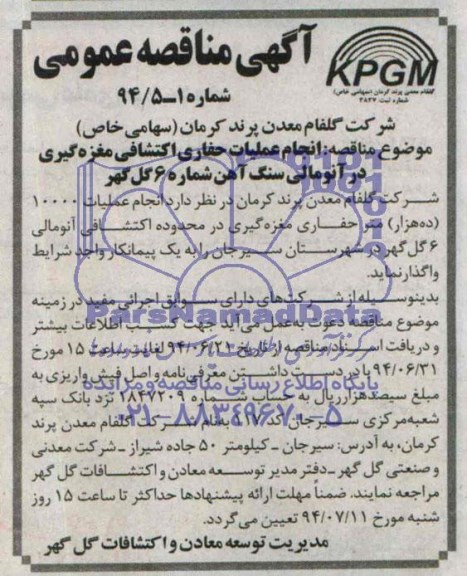 آگهی مناقصه عمومی
شماره ۱-۹۴/۵
KPGM
گلفام معدن پرند کرمان (سهامی خاص)
شماره ثبت: ۳۸۳۷
شرکت گلفام معدن پرند کرمان (سهامی خاص)
موضوع مناقصه: انجام عملیات حفاری اکتشافی مغزه گیری
در آنومالی سنگ آهن شماره ۶ گل گهر
شرکت گلفام معدن پرند کرمان در نظر دارد انجام عملیات ۱۰۰۰۰
(ده‌هزار) متر حفاری مغزه‌گیری در محدوده اکتشافی آنومالی
۶ گل گهر در شهرستان سیرجان را به یک پیمانکار واجد شرایط
واگذار نماید.
بدینوسیله از شرکت‌های دارای سوابق اجرائی مفید در زمینه
موضوع مناقصه دعوت به عمل می‌آید جهت کسب اطلاعات بیشتر
و دریافت اسناد مناقصه از تاریخ ۹۴/۰۶/۲۱ لغایت ساعت ۱۵ مورخ
۹۴/۰۶/۳۱ با در دست داشتن معرفی‌نامه و اصل فیش واریزی به
مبلغ سیصدهزار ریال به حساب شماره ۱۸۴۷۲۰۹ نزد بانک سپه
شعبه مرکزی سیرجان کد ۴۱۷ به نام شرکت گلفام معدن پرند
کرمان، به آدرس: سیرجان ـ کیلومتر ۵۰ جاده شیراز ـ شرکت معدنی
و صنعتی گل گهر ـ دفتر مدیر توسعه معادن و اکتشافات گل گهر
مراجعه نمایند. ضمناً مهلت ارائه پیشنهادها حداکثر تا ساعت ۱۵ روز
شنبه مورخ ۹۴/۰۷/۱۱ تعیین می‌گردد.
مدیریت توسعه معادن و اکتشافات گل گهر
ParsNamadData
پایگاه اطلاع رسانی مناقصه و مزایده
۰۲۱-۸۸۳۴۹۶۷۰-۵